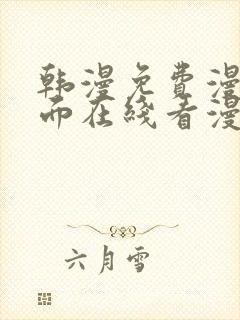 韩漫免费漫
而在线看漫
六月雪